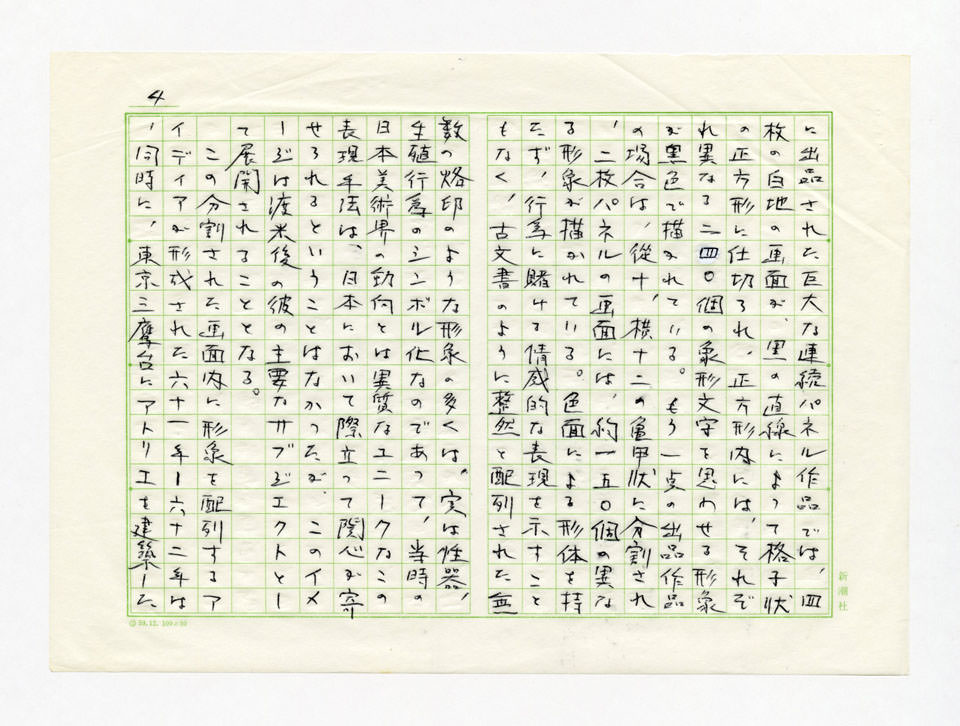 4
に出品された巨大な連続パネル作品では、四
枚の白地の画面が、黒の直線によって格子状
の正方形に仕切られ、正方形内には、それぞ
れ異なる二四〇個の象形文字を思わせる形象
が黒色で描かれている。もう一点の出品作品
の場合は、従十、横十二の亀甲状に分割され
、二枚パネルの画面には、約一五〇個の異な
る形象が描かれている。色面による形体を持
たず、行為に賭ける情感的な表現を示すこと
もなく、古文書のように整然と配列された無
数の烙印のような形象の多くは、実は性器、
生殖行為のシンボル化なのであって、当時の
日本美術界の動向とは異質なユニークなこの
表現手法は、日本において際立って関心が寄
せられるということはなかったが、このイメ
ージは渡米後の彼の主要なサブジェクトとし
て展開されることとなる。
この分割された画面内に形象を配列するア
イディアが形成された六十一年―六十二年は
、同時に、東京三摩台にアトリエを建築した
新潮社
59.12. 100×50